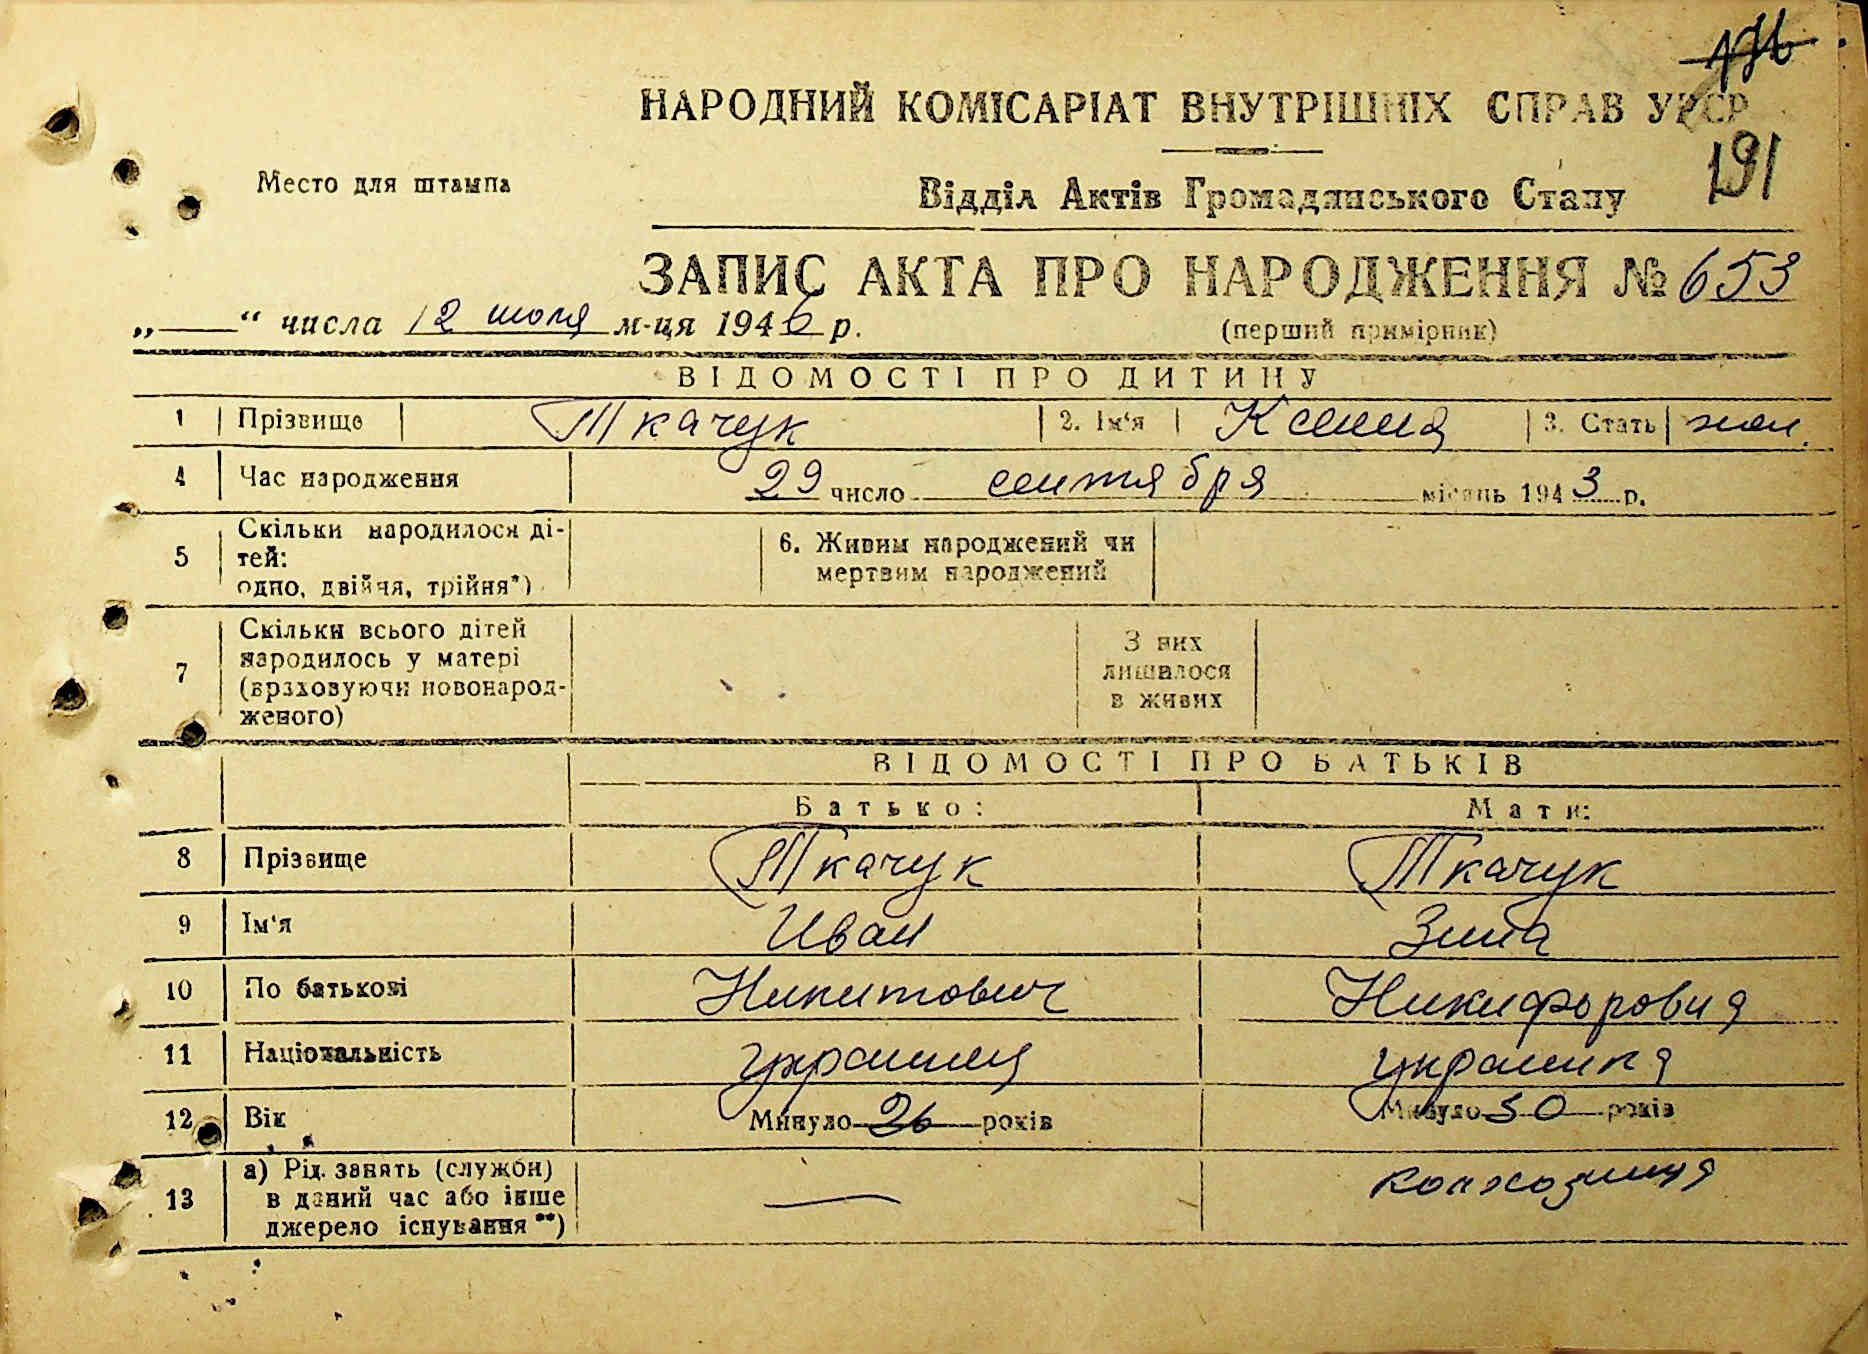 НАРОДНИЙ КОМІСАРІАТ ВНУТРІШНІХ СПРАВ УРСР
191
Место для штампа
Відділ Актів Громадянського Стану
ЗАПИС АКТА ПРО НАРОДЖЕННЯ № 653
„—“ числа 12 июля м-ця 1946 р.
(перший примірник)
ВІДОМОСТІ ПРО ДИТИНУ
1 Прізвище Ткачук 2. Ім'я Ксения 3. Стать жен.
4 Час народження 29 число сентября місяць 1943 р.
5 Скільки народилося ді-
тей:
одно, двійня, трійня*)
6. Живим народжений чи
мертвим народжений
7 Скільки всього дітей
народилось у матері
(враховуючи новонарод-
женого)
З них
лишилося
в живих
ВІДОМОСТІ ПРО БАТЬКІВ
Батько: Мати:
8 Прізвище Ткачук Ткачук
9 Ім'я Иван Зина
10 По батькові Никитович Никифоровна
11 Національність украинец украинка
12 Вік Минуло 26 років Минуло 30 років
13 а) Рід занять (служби)
в даний час або інше
джерело існування **)
— колхозница